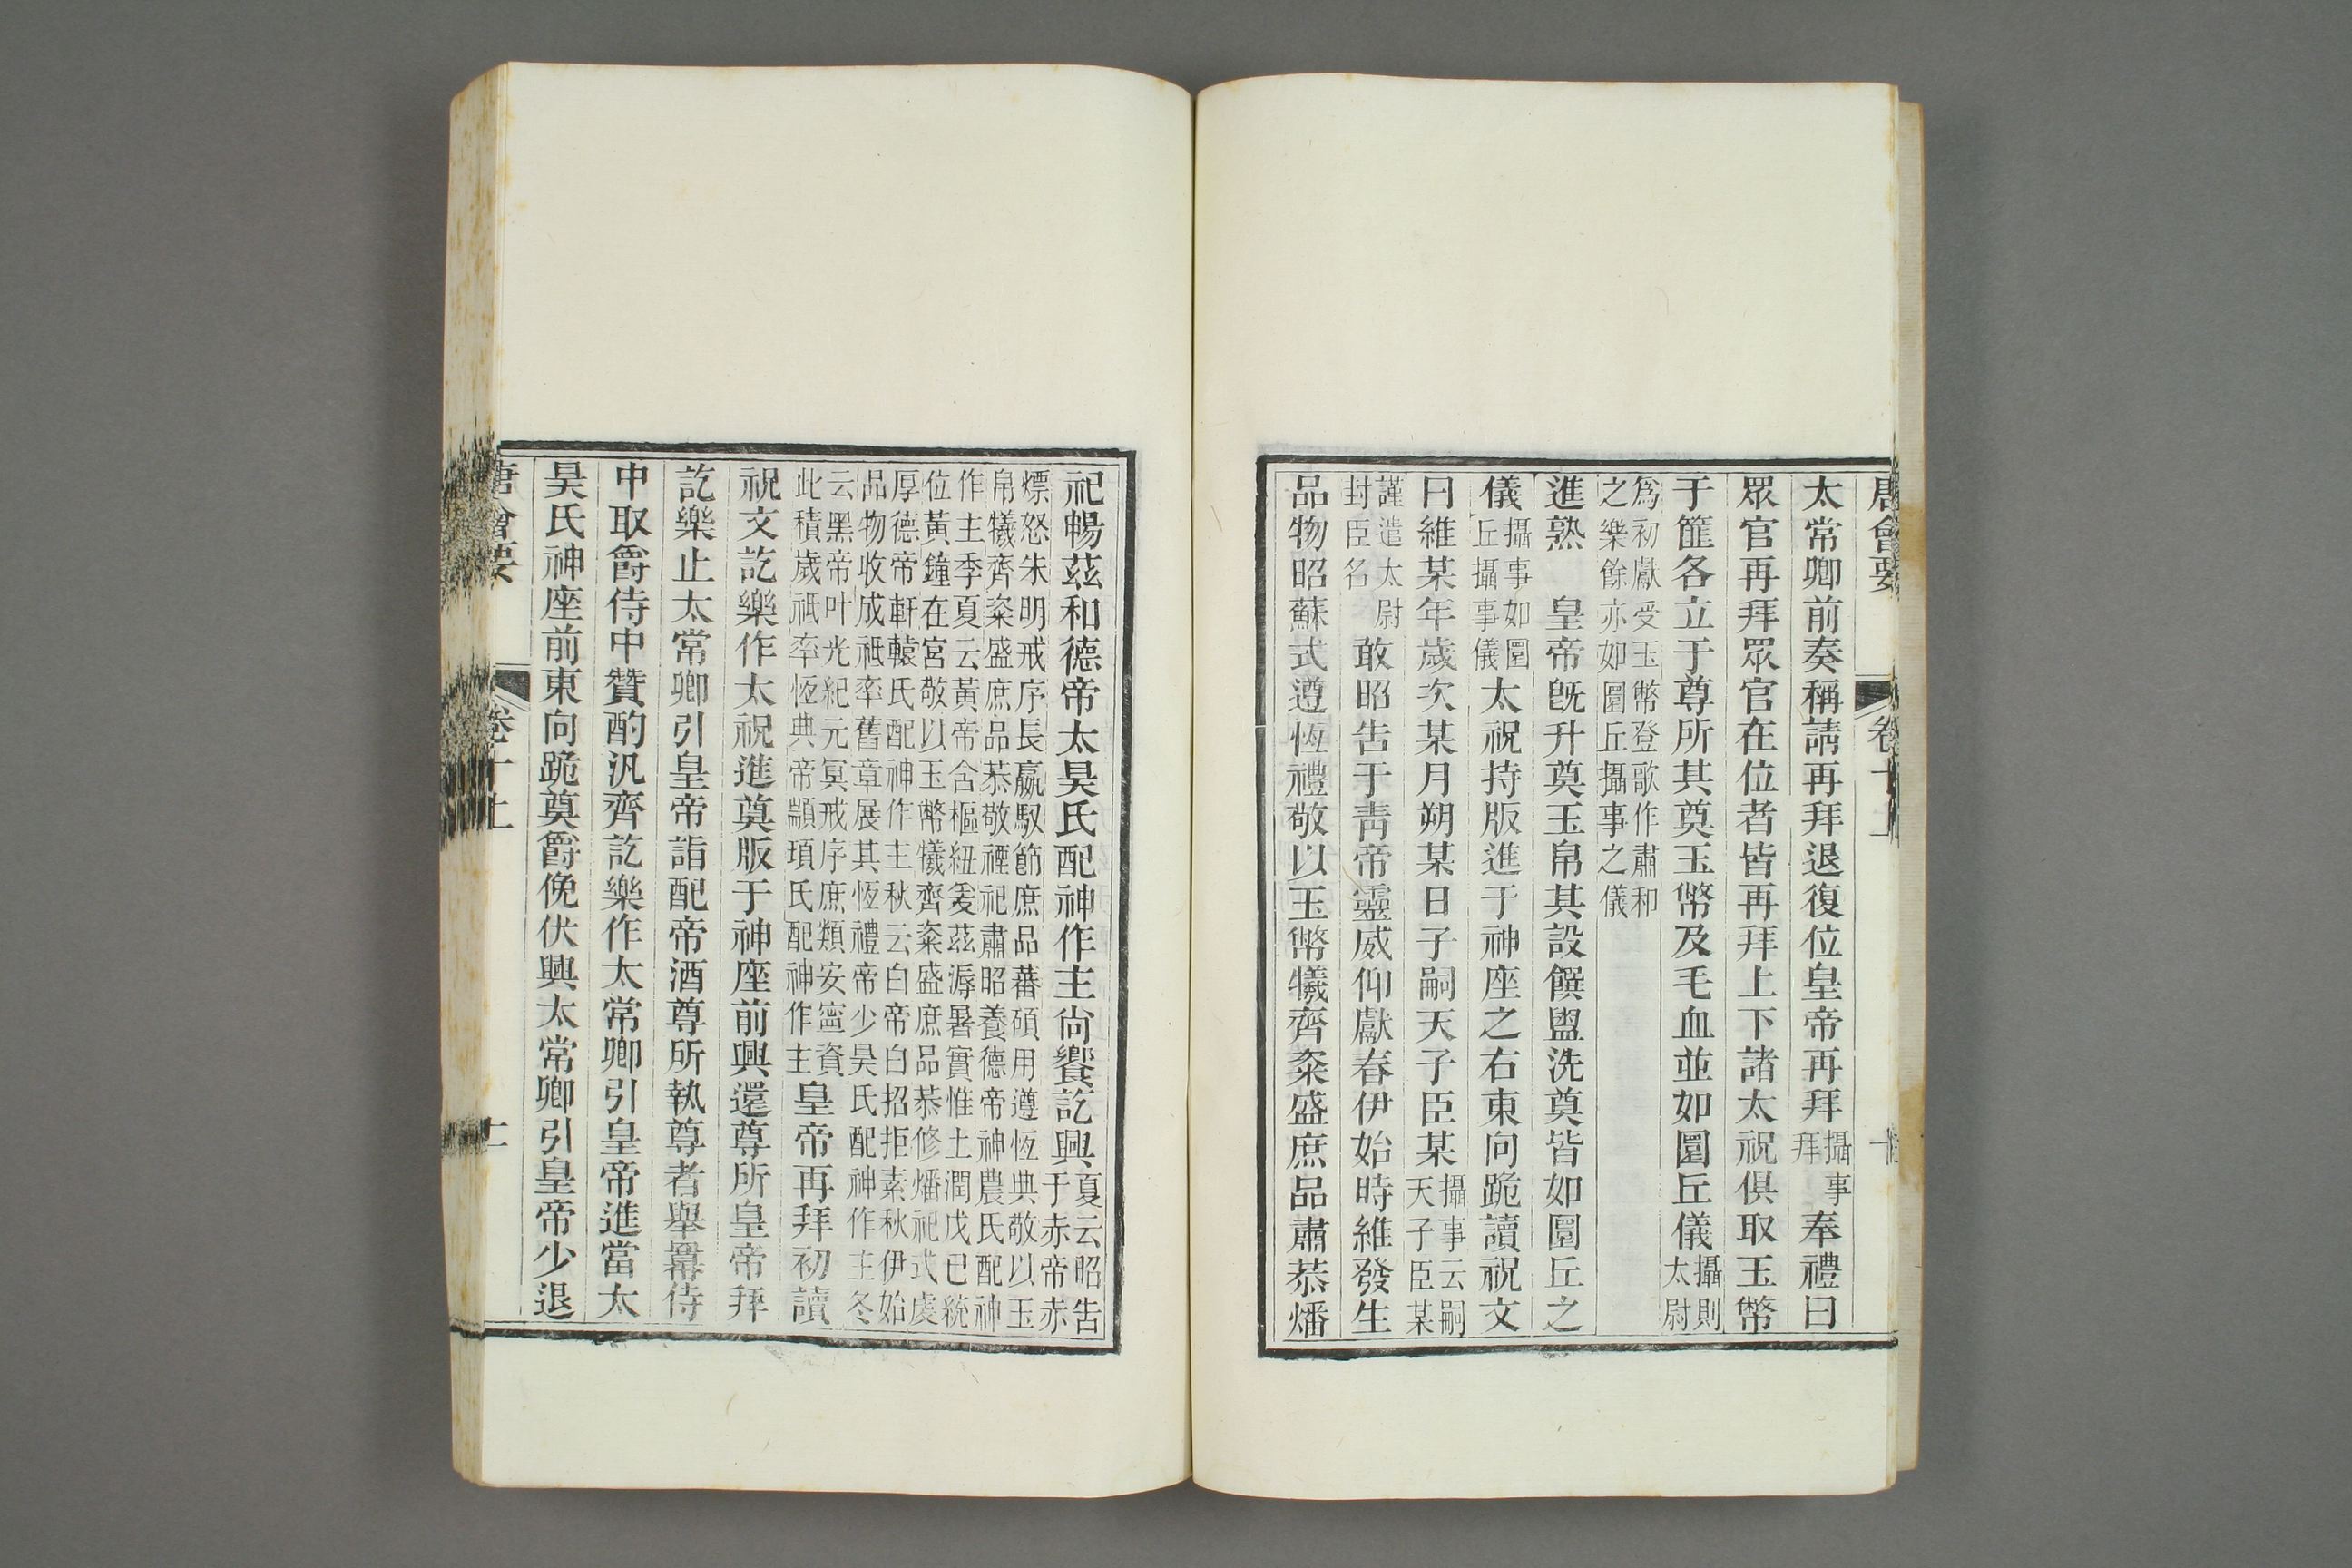 唐會要 卷十上
太常卿前奏稱請再拜退復位皇帝再拜攝事拜奉禮曰
眾官再拜眾官在位者皆再拜上下諸太祝俱取玉幣
于篚各立于尊所其奠玉幣及毛血並如圜丘儀攝則太尉
爲初獻受玉幣登歌作肅和之樂餘亦如圜丘攝事之儀
進熟 皇帝既升奠玉帛其設饌盥洗奠皆如圜丘之
儀攝事如圜丘攝事儀太祝持版進于神座之右東向跪讀祝文
曰維某年歲次某月朔某日子嗣天子臣某攝事云嗣天子臣某
謹遣太尉封臣名敢昭告于靑帝靈威仰獻春伊始時維發生
品物昭蘇式遵恆禮敬以玉幣犧齊粢盛庶品肅恭燔
祀暢茲和德帝太昊氏配神作主尙饗訖興夏云昭告于赤帝赤
熛怒朱明戒序長嬴馭節庶品蕃碩用遵恆典敬以玉帛犧齊粢盛庶品恭敬禋祀肅昭養德帝神農氏配神
作主季夏云黃帝含樞紐爰茲溽暑實惟土潤戊巳統位黃鐘在宮敬以玉幣犧齊粢盛庶品恭修燔祀式虔
厚德帝軒轅氏配神作主秋云白帝白招拒素秋伊始品物收成祗率舊章展其恆禮帝少昊氏配神作主冬
云黑帝叶光紀元冥戒序庶類安寍資此積歲祗率恆典帝顓頊氏配神作主皇帝再拜初讀
祝文訖樂作太祝進奠版于神座前興還尊所皇帝拜
訖樂止太常卿引皇帝詣配帝酒尊所執尊者舉羃侍
中取爵侍中贊酌汎齊訖樂作太常卿引皇帝進當太
昊氏神座前東向跪奠爵俛伏興太常卿引皇帝少退
唐會要 卷十上